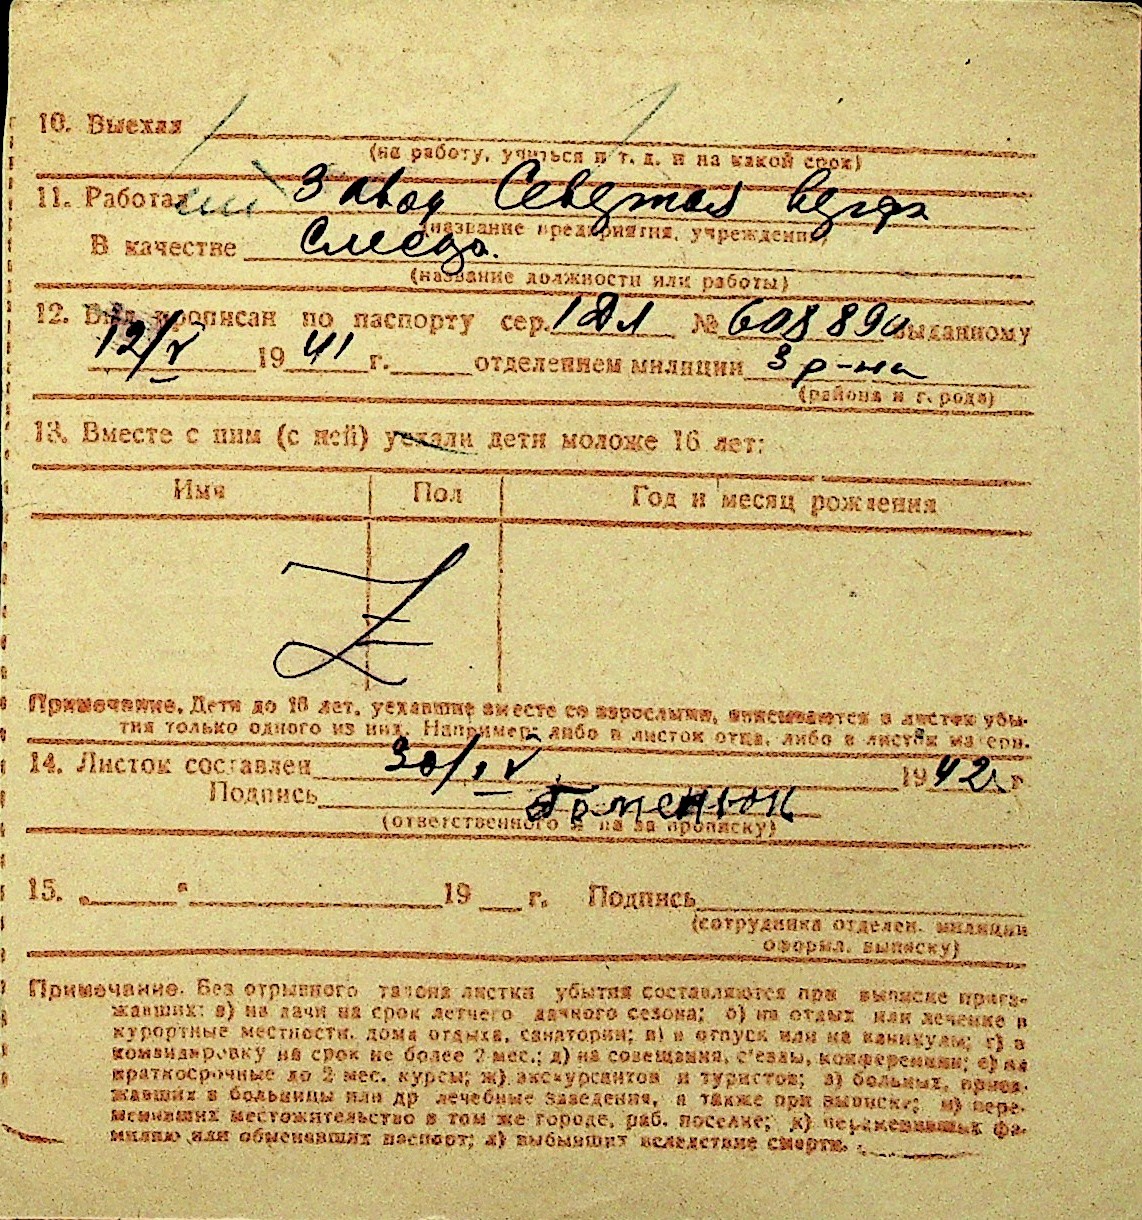 10. Выехал
(на работу, учиться и т. д. и на какой срок)
11. Работал Завод Северная верфь
(название предприятия, учреждения)
В качестве слесаря
(название должности или работы)
12. Был прописан по паспорту сер. № 608890 выданному
12/V 1941 г. отделением милиции 3 р-на
(района и города)
13. Вместе с ним (с ней) уехали дети моложе 16 лет:
Имя Пол Год и месяц рождения
Z
Примечание. Дети до 16 лет, уехавшие вместе со взрослыми, вписываются в листок убы-
тия только одного из них. Например: либо в листок отца, либо в листок матери.
14. Листок составлен 30/IV 1942 г.
Подпись
(ответственного л на за прописку)
15. „ " 19 г. Подпись
(сотрудника отделен. милиции
оформл. выписку)
Примечание. Без отрывного талона листки убытия составляются при выписке приез-
жавших: а) на дачи на срок летнего дачного сезона; б) на отдых или лечение в
курортные местности, дома отдыха, санатории; в) в отпуск или на каникулы; г) в
командировку на срок не более 2 мес.; д) на совещания, с'езды, конференции; е) на
краткосрочные до 2 мес. курсы; ж) экскурсантов и туристов; з) больных, приез-
жавших в больницы или др лечебные заведения, а также при выписке; и) пере-
менивших местожительство в том же городе, раб. поселке; к) переменивших фа-
милию или обменявших паспорт; л) выбывших вследствие смерти.